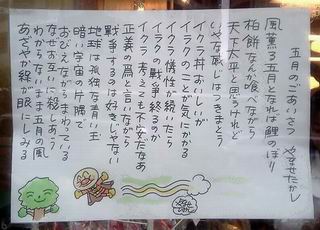 五月のごあいさつ やなせたかし
風薫る五月となれば鯉のぼり
柏餅なんか食べながら
天下太平と思うけれど
いやな感じはつきまとう
イクラ丼おいしいが
イラクのことが気にかかる
イラク情性が続いたら
イラクの戦争終るのか
イクラ考えても不安だなあ
正義の為と言いながら
戦争するのは好きじゃない
地球は孤独な青い玉
暗い宇宙の片隅で
おびえながらまわっている
なぜお互いに殺しあう
わからないまま五月の風
あざやか緑が眼にしみる